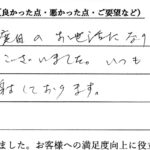 （良かった点・悪かった点・ご要望など）
度目のお世話になり
ございました。いつも
謝しております。
ました。お客様への満足度向上に役立